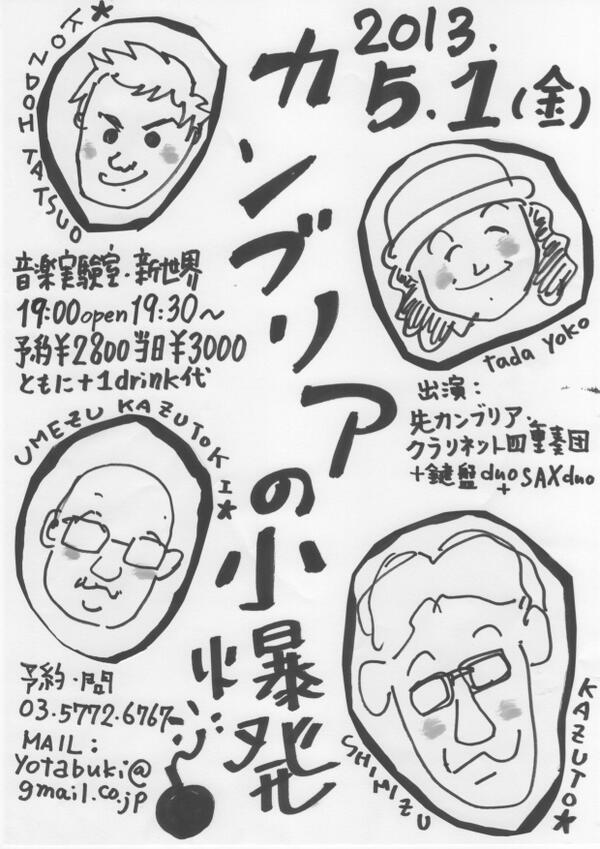 2013.
5.1(金)
カンブリアの小爆発
KONDOH TATSUO
tada yoko
音楽実験室・新世界
19:00open 19:30〜
予約¥2800当日¥3000
ともに+1drink代
出演:
先カンブリア・
クラリネット四重奏団
+鍵盤duo+SAXduo
UMEZU KAZUTOKI
KAZUTO
SHIMIZU
予約・問
03.5772.6767
MAIL:
yotabuki@
gmail.co.jp